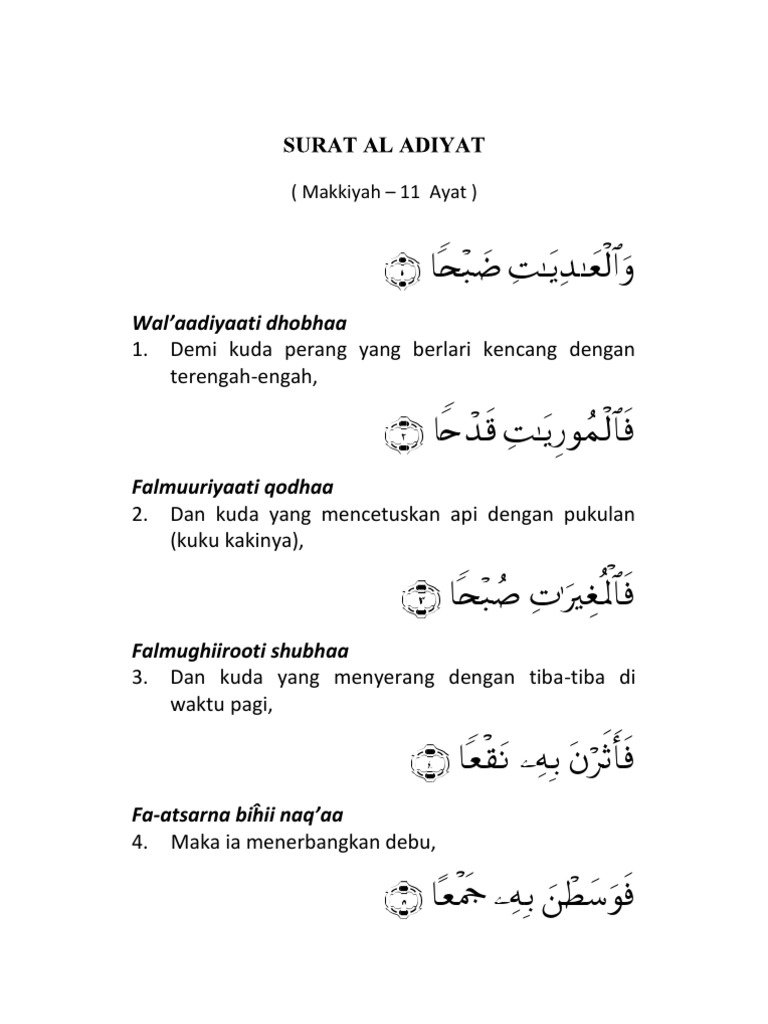 SURAT AL ADIYAT
( Makkiyah – 11 Ayat )
وَٱلْعَـٰدِيَـٰتِ ضَبْحًا ﴿١﴾
Wal’aadiyaati dhobhaa
1. Demi kuda perang yang berlari kencang dengan
terengah-engah,
فَٱلْمُورِيَـٰتِ قَدْحًا ﴿٢﴾
Falmuuriyaati qodhaa
2. Dan kuda yang mencetuskan api dengan pukulan
(kuku kakinya),
فَٱلْمُغِيرَٰتِ صُبْحًا ﴿٣﴾
Falmughiirooti shubhaa
3. Dan kuda yang menyerang dengan tiba-tiba di
waktu pagi,
فَأَثَرْنَ بِهِۦ نَقْعًا ﴿٤﴾
Fa-atsarna biĥii naq’aa
4. Maka ia menerbangkan debu,
فَوَسَطْنَ بِهِۦ جَمْعًا ﴿٥﴾